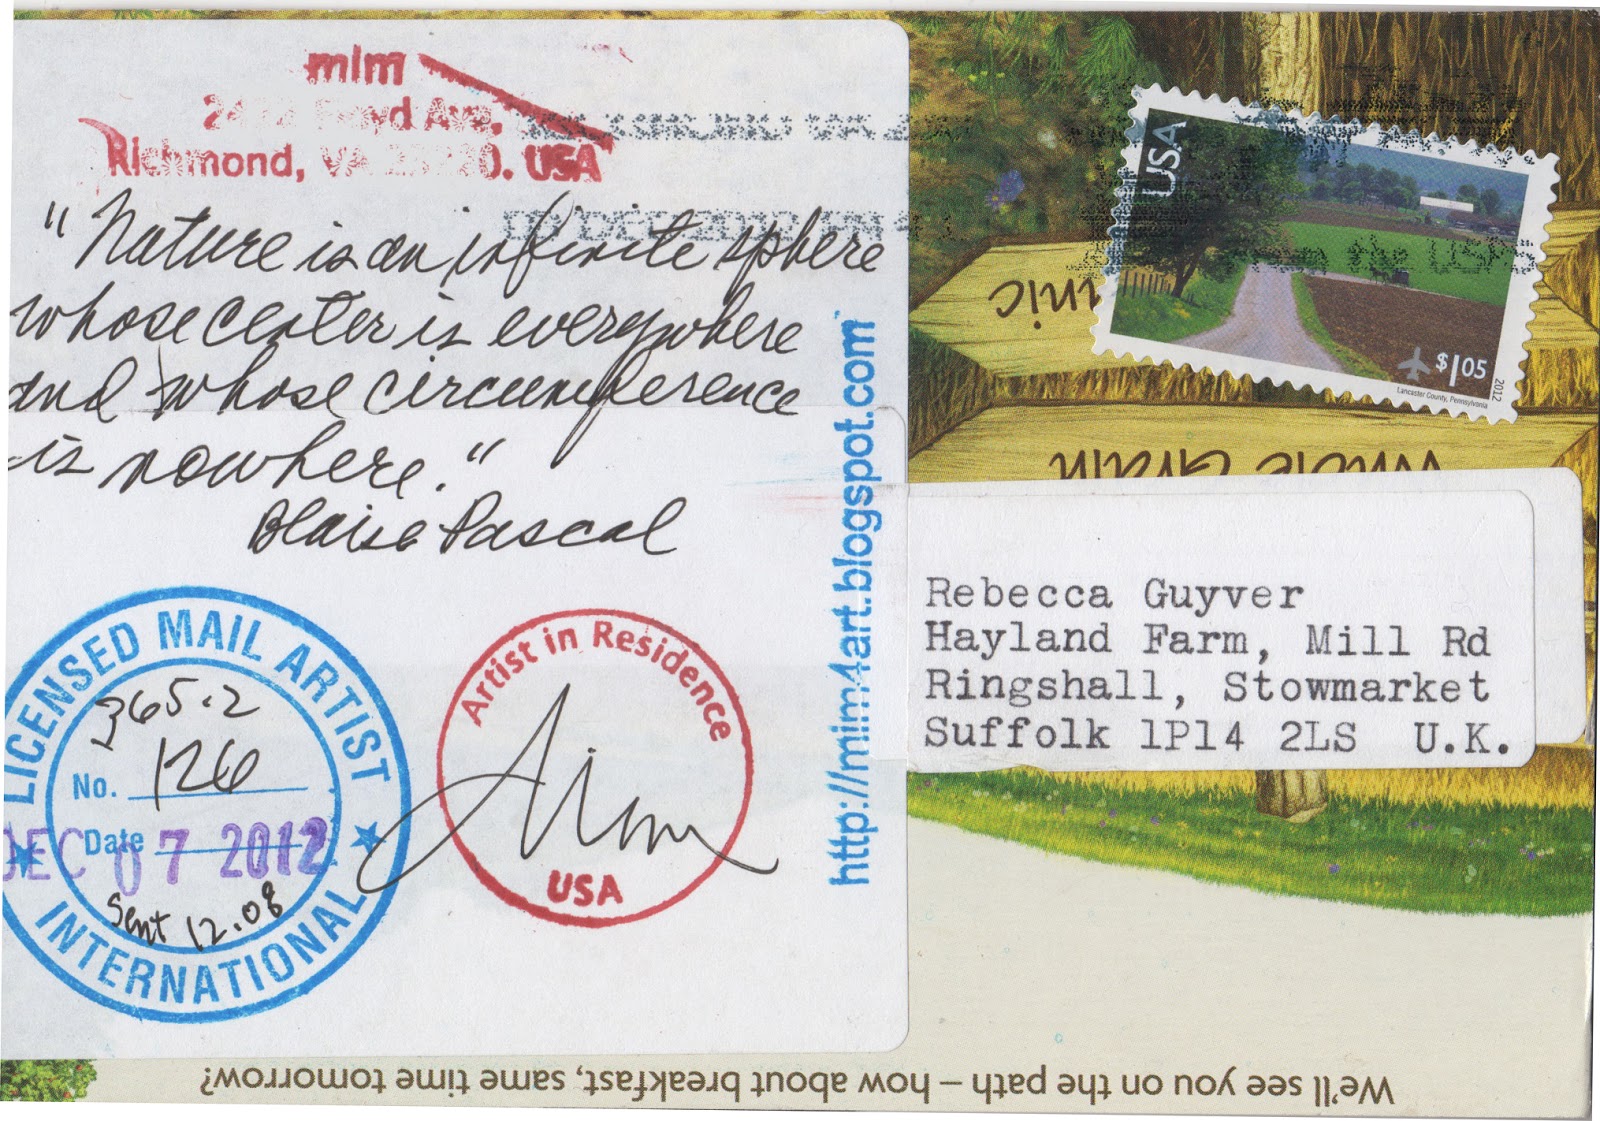 mim
Ave,
Richmond, VA USA
"Nature is an infinite sphere
whose center is everywhere
and whose circumference
is nowhere."
Blaise Pascal
LICENSED MAIL ARTIST
365.2
No. 126
Date DEC 07 2012
Sent 12.08
INTERNATIONAL
Artist in Residence
USA
http://mim4art.blogspot.com
USA
from the USPS
$1.05
2012
Lancaster County, Pennsylvania
Whole Grain
Rebecca Guyver
Hayland Farm, Mill Rd
Ringshall, Stowmarket
Suffolk 1P14 2LS U.K.
We'll see you on the path – how about breakfast, same time tomorrow?